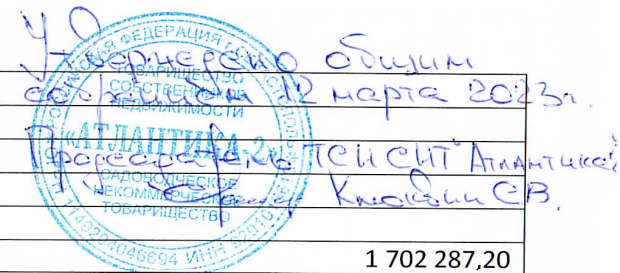 Утверждено общим
собранием 12 марта 2023г.
Председатель ТСН СНТ "Атлантика
С.В.
РОССИЙСКАЯ ФЕДЕРАЦИЯ
ТОВАРИЩЕСТВО
СОБСТВЕННИКОВ
НЕДВИЖИМОСТИ
«АТЛАНТИКА-2»
САДОВОДЧЕСКОЕ
НЕКОММЕРЧЕСКОЕ
ТОВАРИЩЕСТВО
ИНН
1 702 287,20